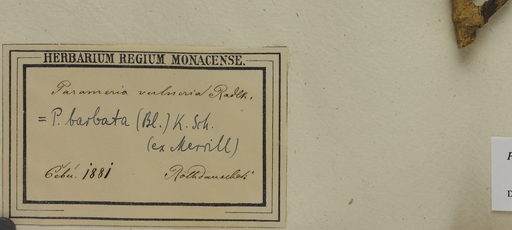 HERBARIUM REGIUM MONACENSE.
Parameria vulneria Radlk.
= P. barbata (Bl.) K. Sch.
(ex Merrill)
Cebú. 1881